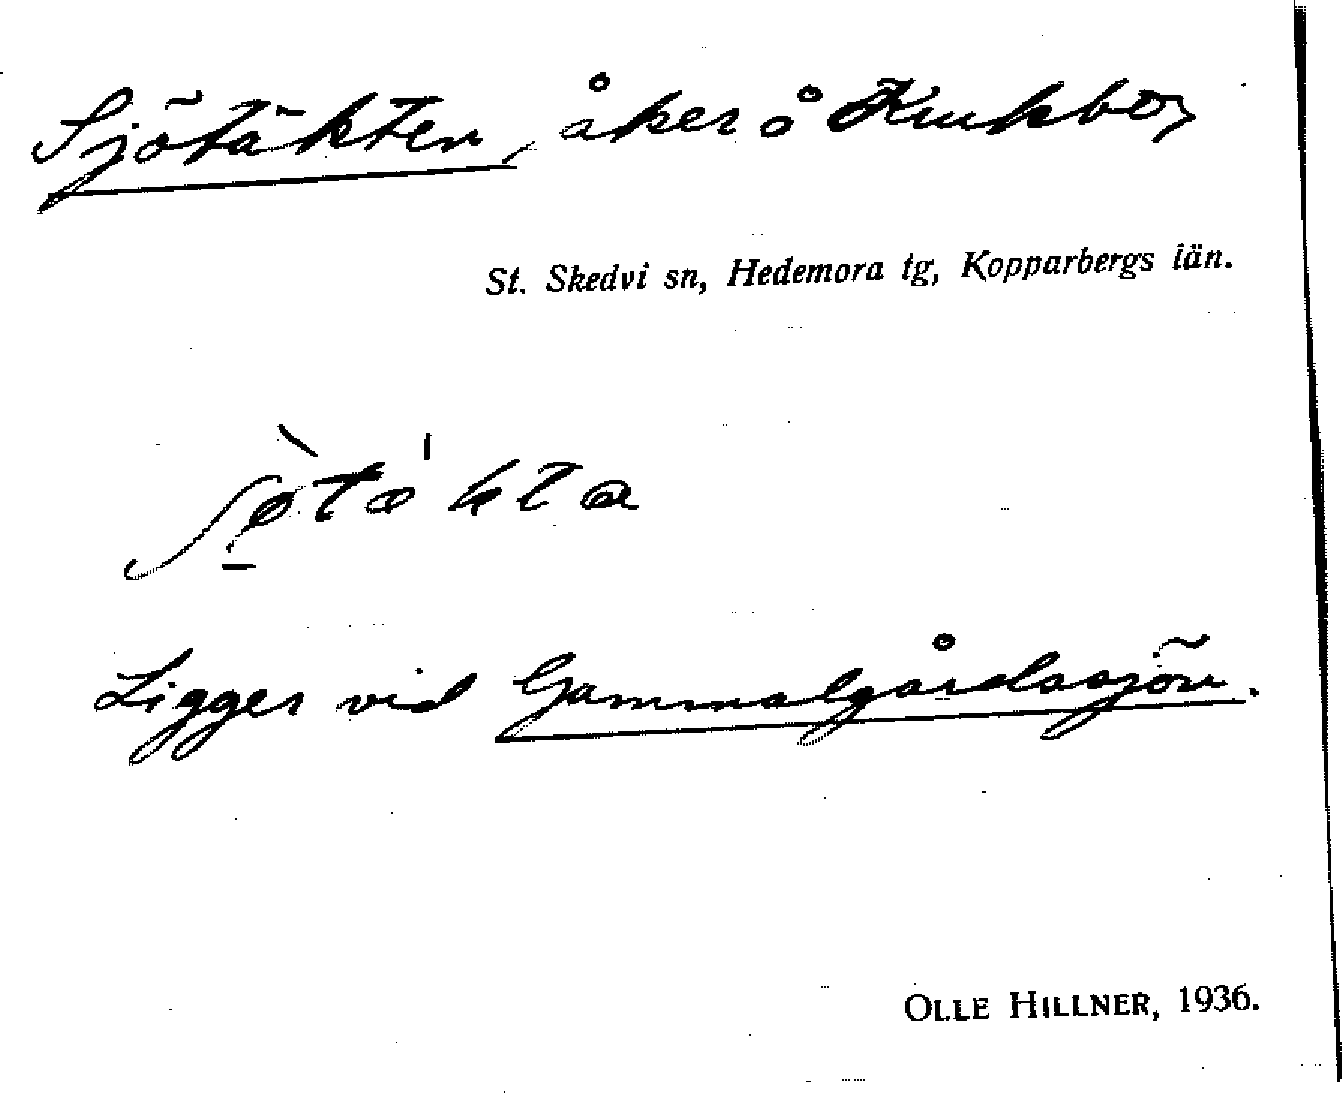 Sjötäkten, åker å Knukbo,
St. Skedvi sn, Hedemora tg, Kopparbergs län.
Ligger vid Gammalgårdssjön.
OLLE HILLNER, 1936.